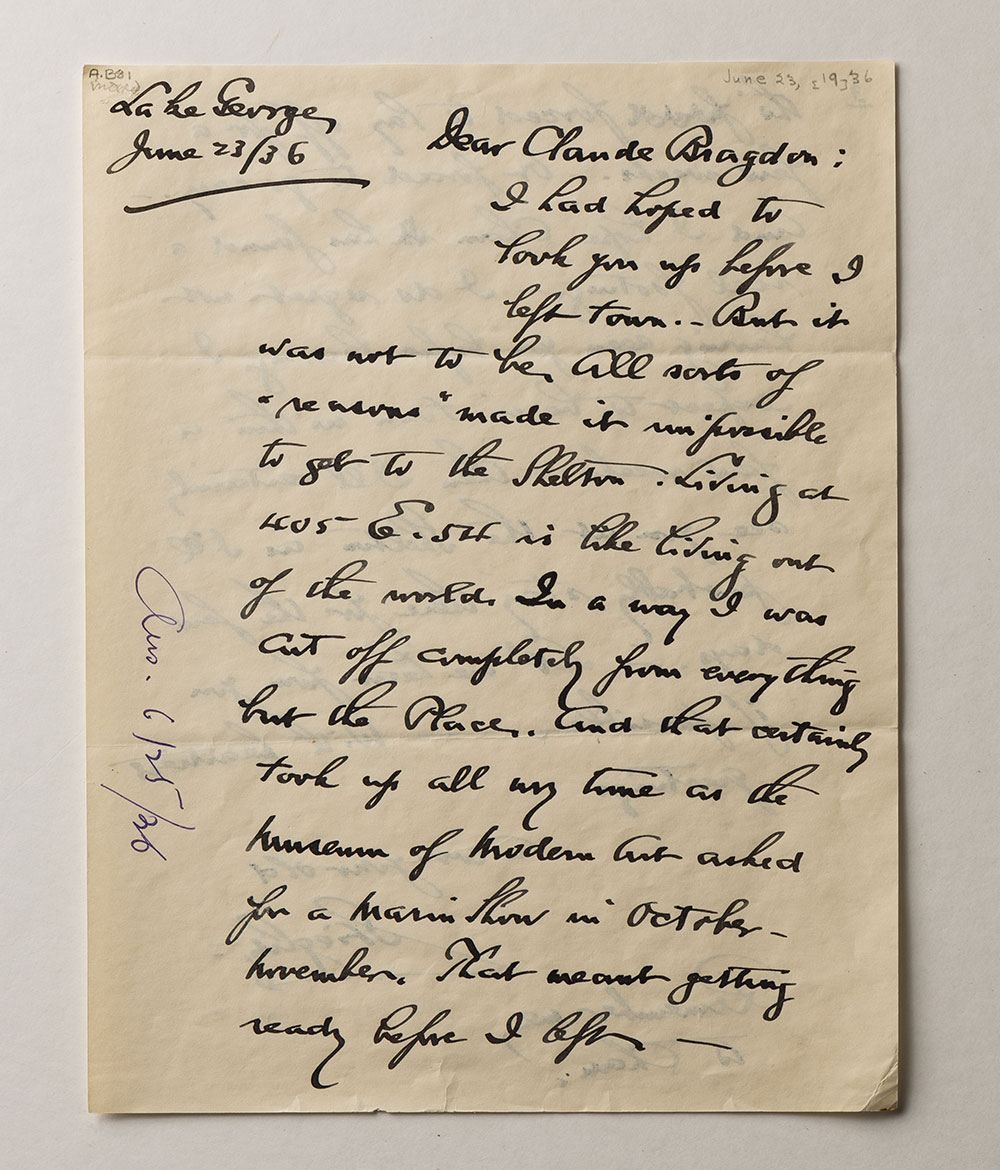 A.B31
June 23, [19]36
Lake George,
June 23/36
Dear Claude Bragdon:
I had hoped to
look you up before I
left town.. But it
was not to be. All sorts of
"reasons" made it impossible
to get to the Shelton. Living at
405 E. 54 is like living out
of the world. In a way I was
cut off completely from everything
but the Place. And that certainly
took up all my time as the
Museum of Modern Art asked
for a Marin Show in October-
November. That meant getting
ready before I left. —
Ans. 6/25/36